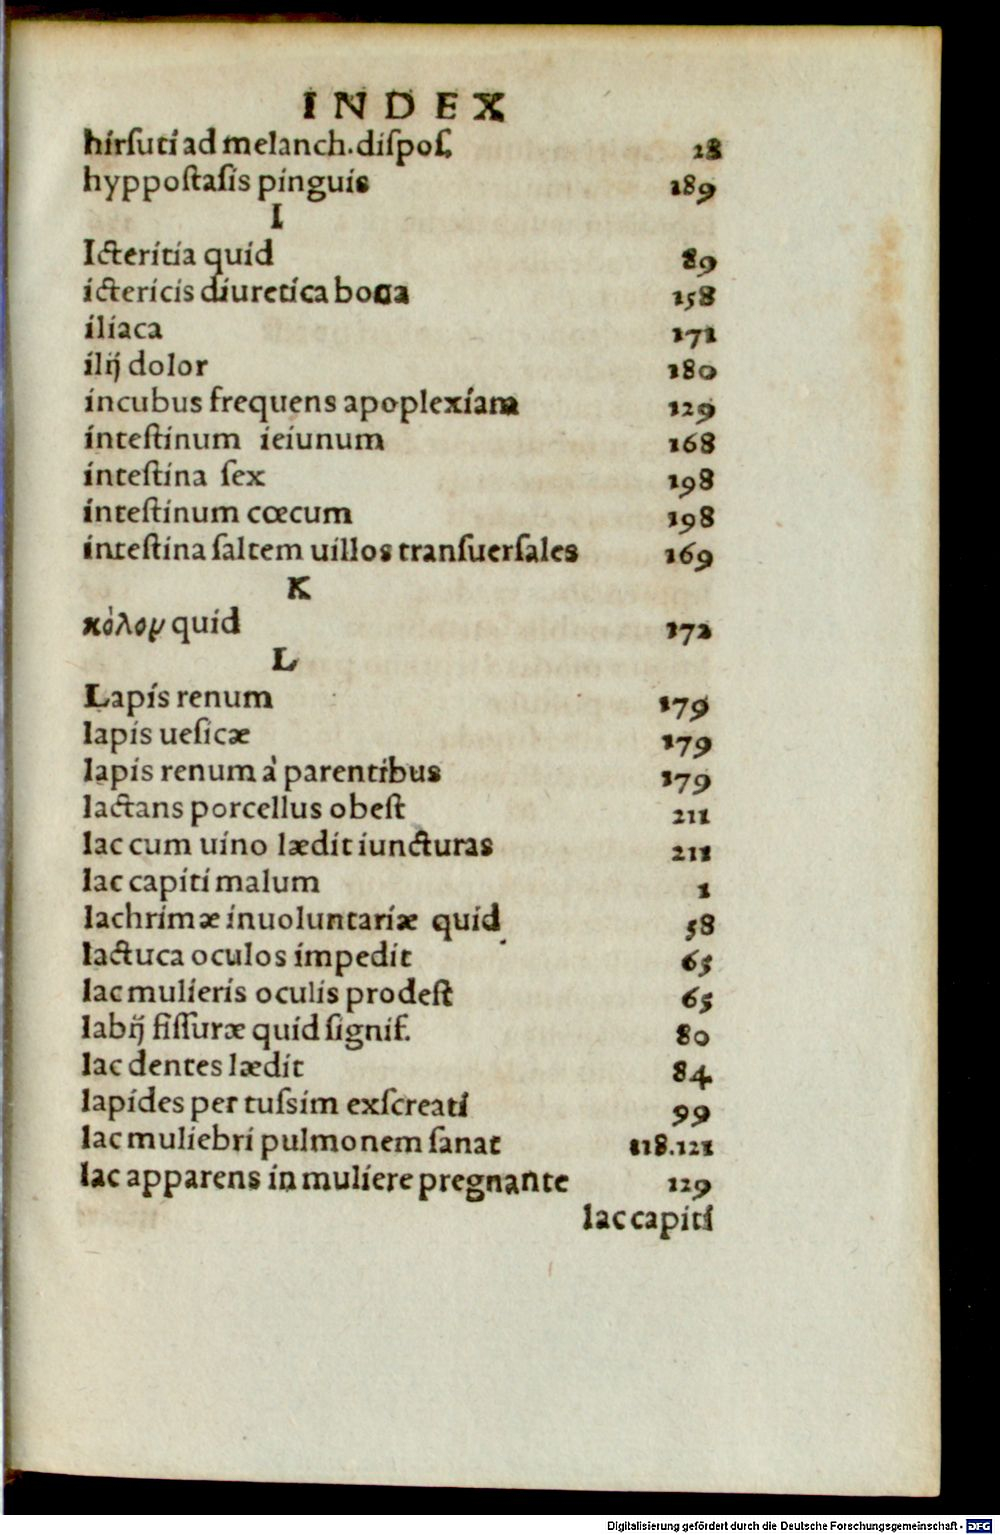 INDEX
hirſuti ad melanch.diſpoſ. 28
hyppoſtaſis pinguis 189
I
Icteritia quid 89
ictericis diuretica bona 158
iliaca 171
ilij dolor 180
incubus frequens apoplexiam 129
inteſtinum ieiunum 168
inteſtina ſex 198
inteſtinum cœcum 198
inteſtina ſaltem uillos tranſuerſales 169
K
κόλον quid 172
L
Lapis renum 179
lapis ueſicæ 179
lapis renum à parentibus 179
lactans porcellus obeſt 211
lac cum uino lædit iuncturas 211
lac capiti malum 1
lachrimæ inuoluntariæ quid 58
lactuca oculos impedit 65
lac mulieris oculis prodeſt 65
labij fiſſuræ quid ſignif. 80
lac dentes lædit 84
lapides per tuſsim exſcreati 99
lac muliebri pulmonem ſanat 118.121
lac apparens in muliere pregnante 129
lac capiti
Digitalisierung gefördert durch die Deutsche Forschungsgemeinschaft - DFG